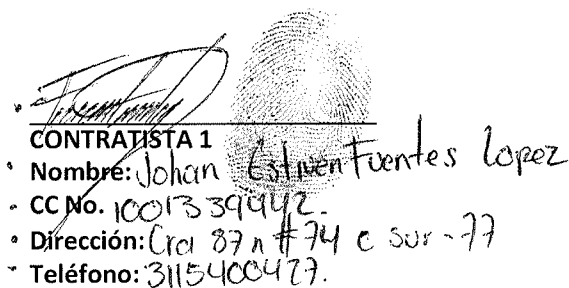 CONTRATISTA 1
Nombre: Johan Estiven Fuentes Lopez
CC No. 1001339442.
Dirección: Cra 87 n # 74 c sur - 77
Teléfono: 3115400427.